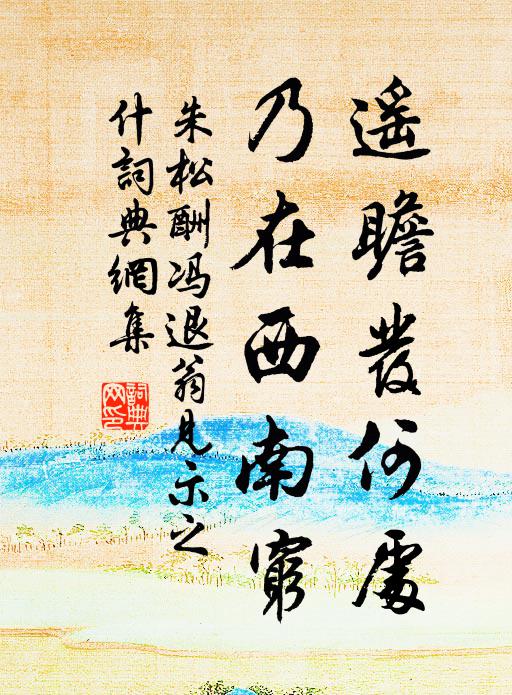 遥瞻發何處
乃在西南窮
朱松酬冯退翁見示之
什詞典網集
詞典
网印